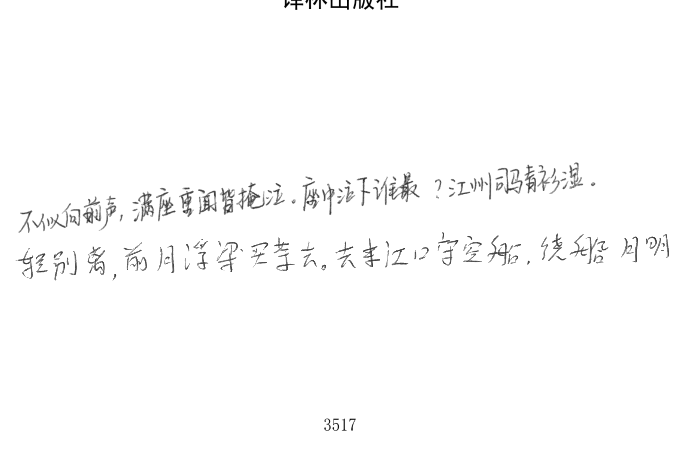 译林出版社
不似向前声,满座重闻皆掩泣。座中泣下谁最?江州司马青衫湿。
轻别离,前月浮梁买茶去。去来江口守空船,绕船月明
3517